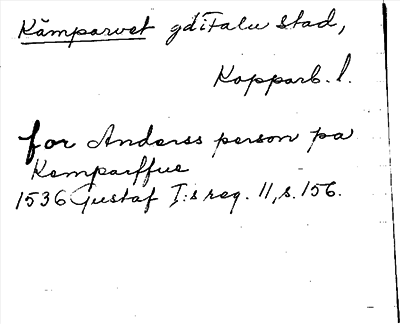 Kämparvet gd i Falu stad,
Kopparb. l.
for Anderss person pa
Kemparffue
1536 Gustaf I:s reg. 11, s. 156.